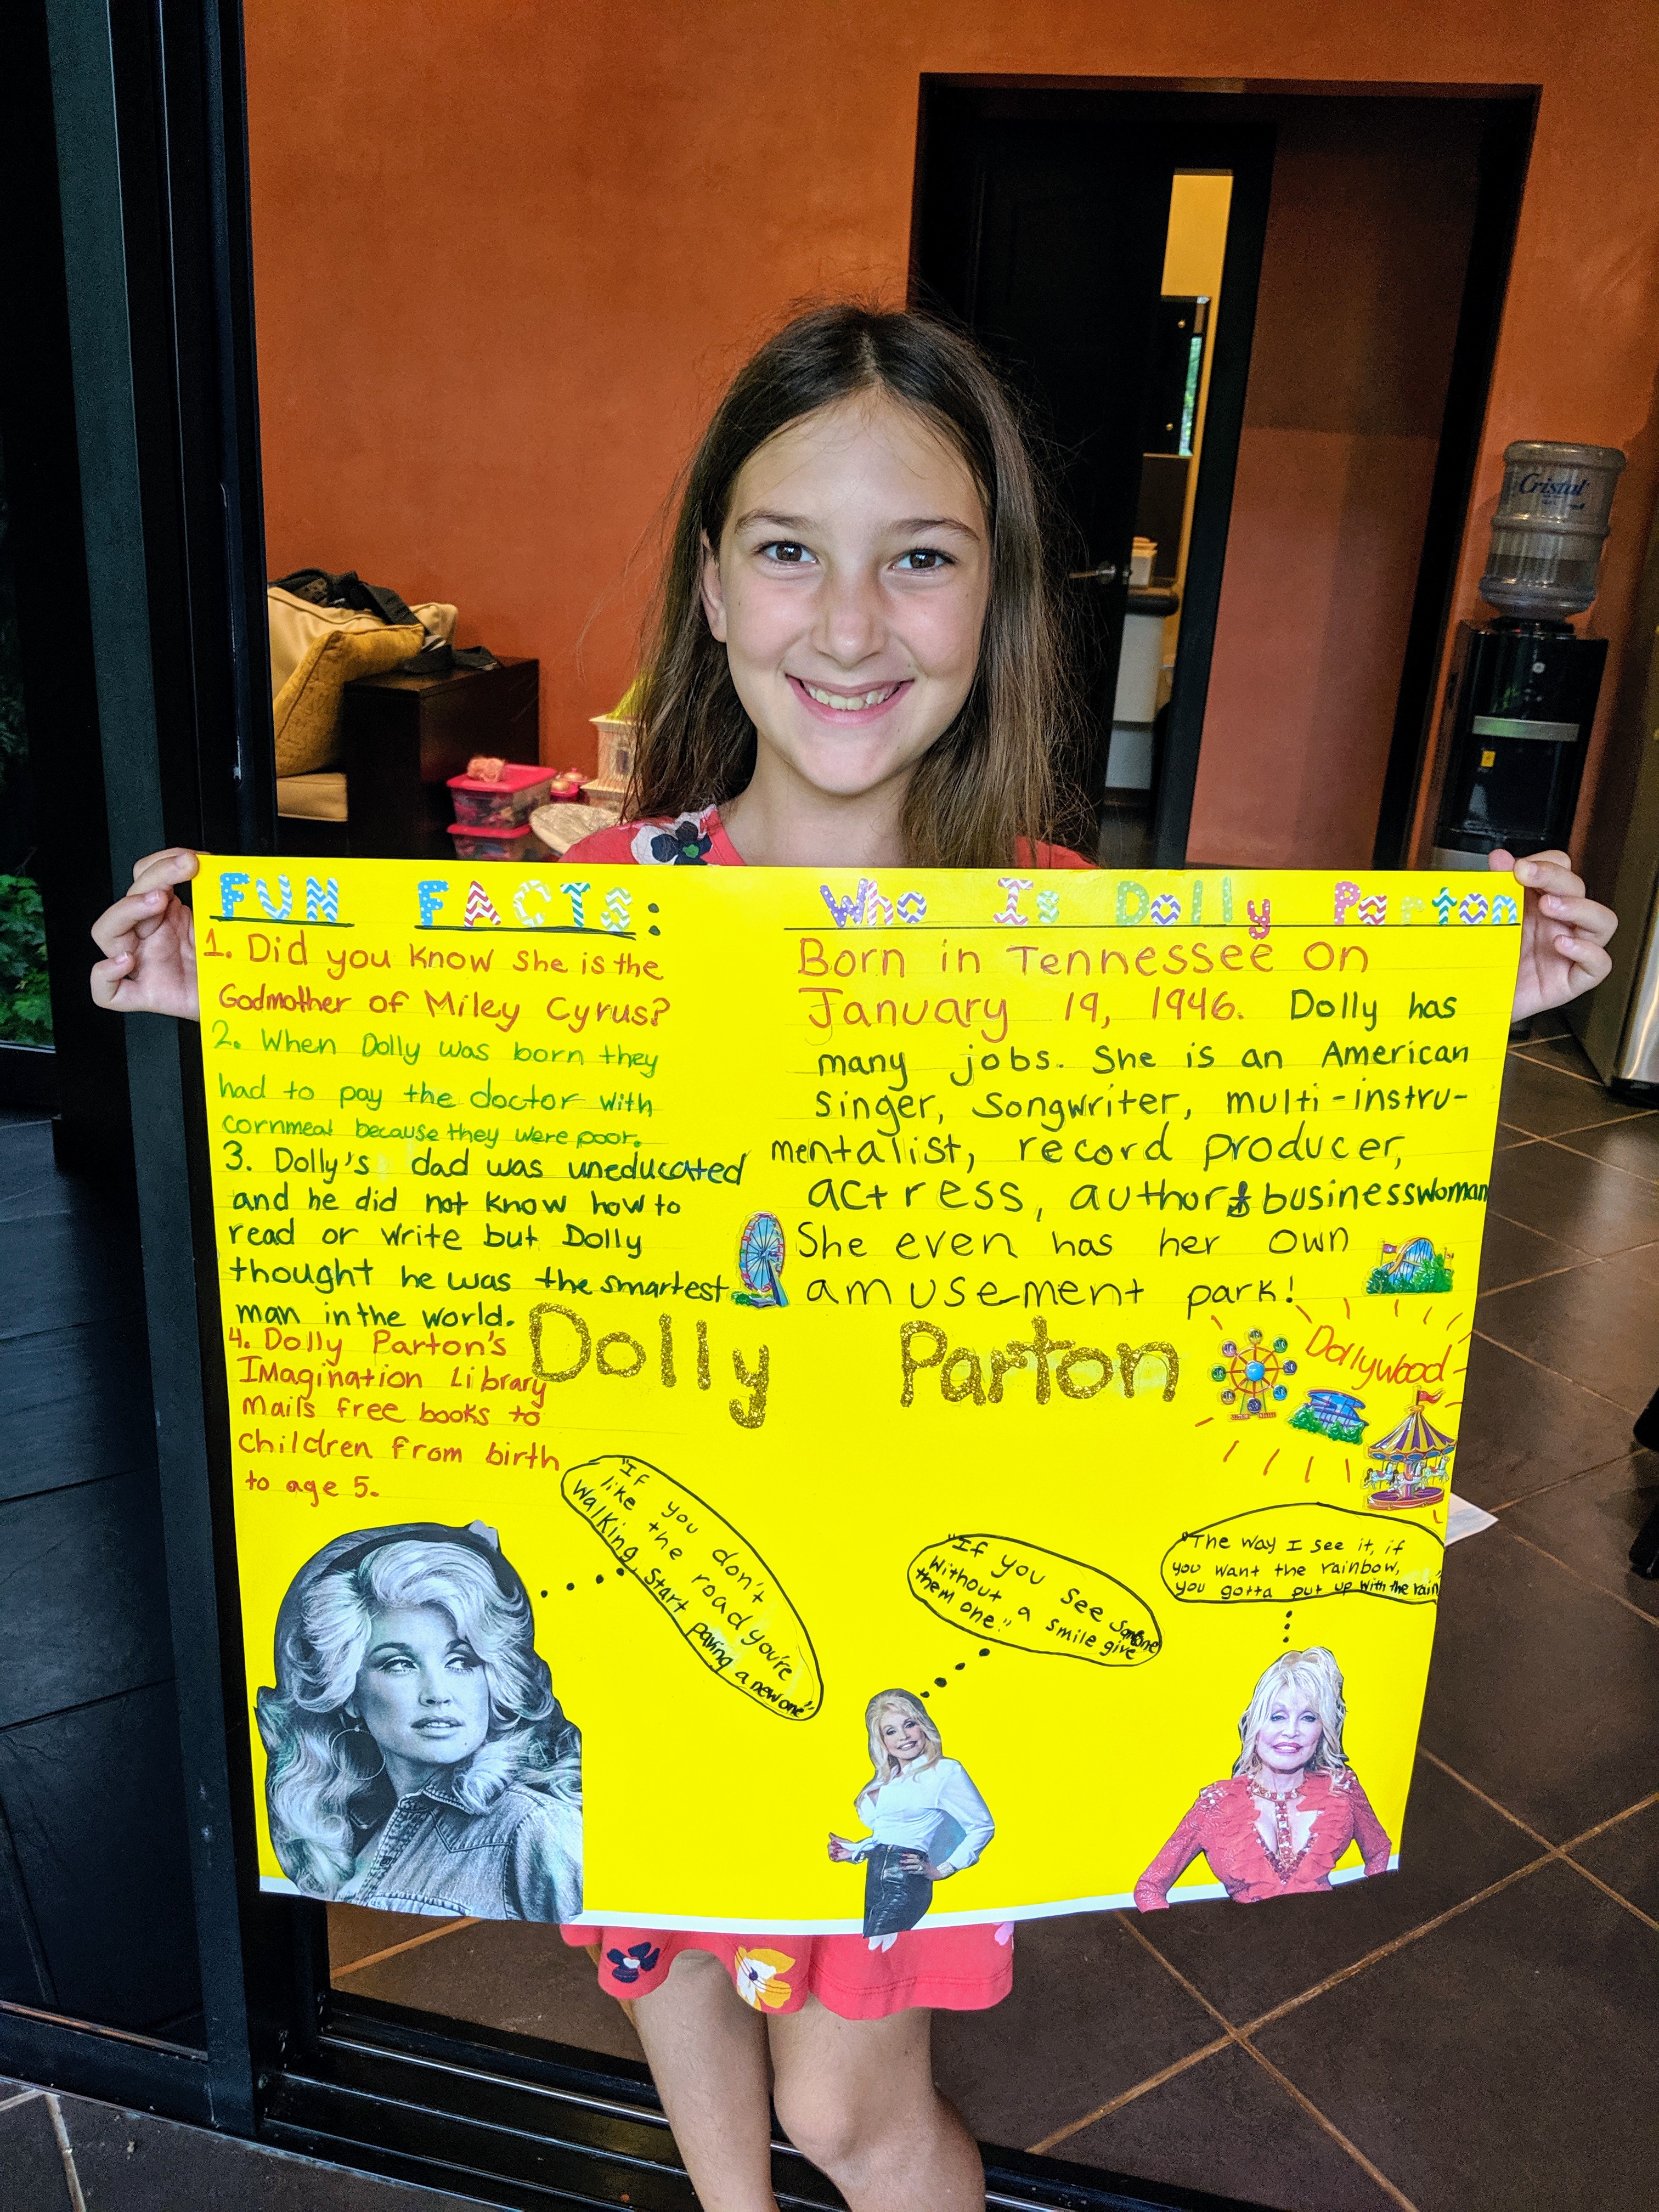 FUN FACTS:
1. Did you know she is the
Godmother of Miley Cyrus?
2. When Dolly was born they
had to pay the doctor with
cornmeal because they were poor.
3. Dolly's dad was uneducated
and he did not know how to
read or write but Dolly
thought he was the smartest
man in the world.
4. Dolly Parton's
IMagination Library
Mails free books to
children from birth
to age 5.
Who Is Dolly Parton
Born in Tennessee on
January 19, 1946. Dolly has
many jobs. She is an American
singer, songwriter, multi-instru-
mentalist, record producer,
actress, author & businesswoman
She even has her own
amusement park!
Dolly Parton
Dollywood
"If you don't
like the road you're
walking, start paving a new one"
"If you see someone
without a smile give
them one."
"The way I see it, if
you want the rainbow,
you gotta put up with the rain"
Cristal